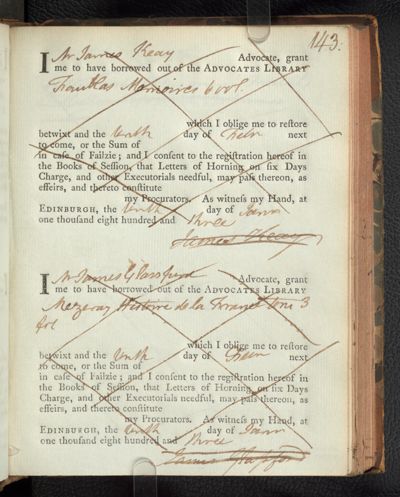 143.
I Mr James Keay Advocate, grant
me to have borrowed out of the ADVOCATES LIBRARY
Memoires 6 vol.
which I oblige me to restore
betwixt and the tenth day of Febr next
to come, or the Sum of
in case of Failzie; and I consent to the registration hereof in
the Books of Session, that Letters of Horning on six Days
Charge, and other Executorials needful, may pass thereon, as
effeirs, and thereto constitute
my Procurators. As witness my Hand, at
EDINBURGH, the tenth day of Janry
one thousand eight hundred and three
James Keay
I Mr James Glassford Advocate, grant
me to have borrowed out of the ADVOCATES LIBRARY
Mezeray Histoire de la France Tom 3
fol
which I oblige me to restore
betwixt and the tenth day of Febr next
to come, or the Sum of
in case of Failzie; and I consent to the registration hereof in
the Books of Session, that Letters of Horning on six Days
Charge, and other Executorials needful, may pass thereon, as
effeirs, and thereto constitute
my Procurators. As witness my Hand, at
EDINBURGH, the tenth day of Janry
one thousand eight hundred and three
James Glassford